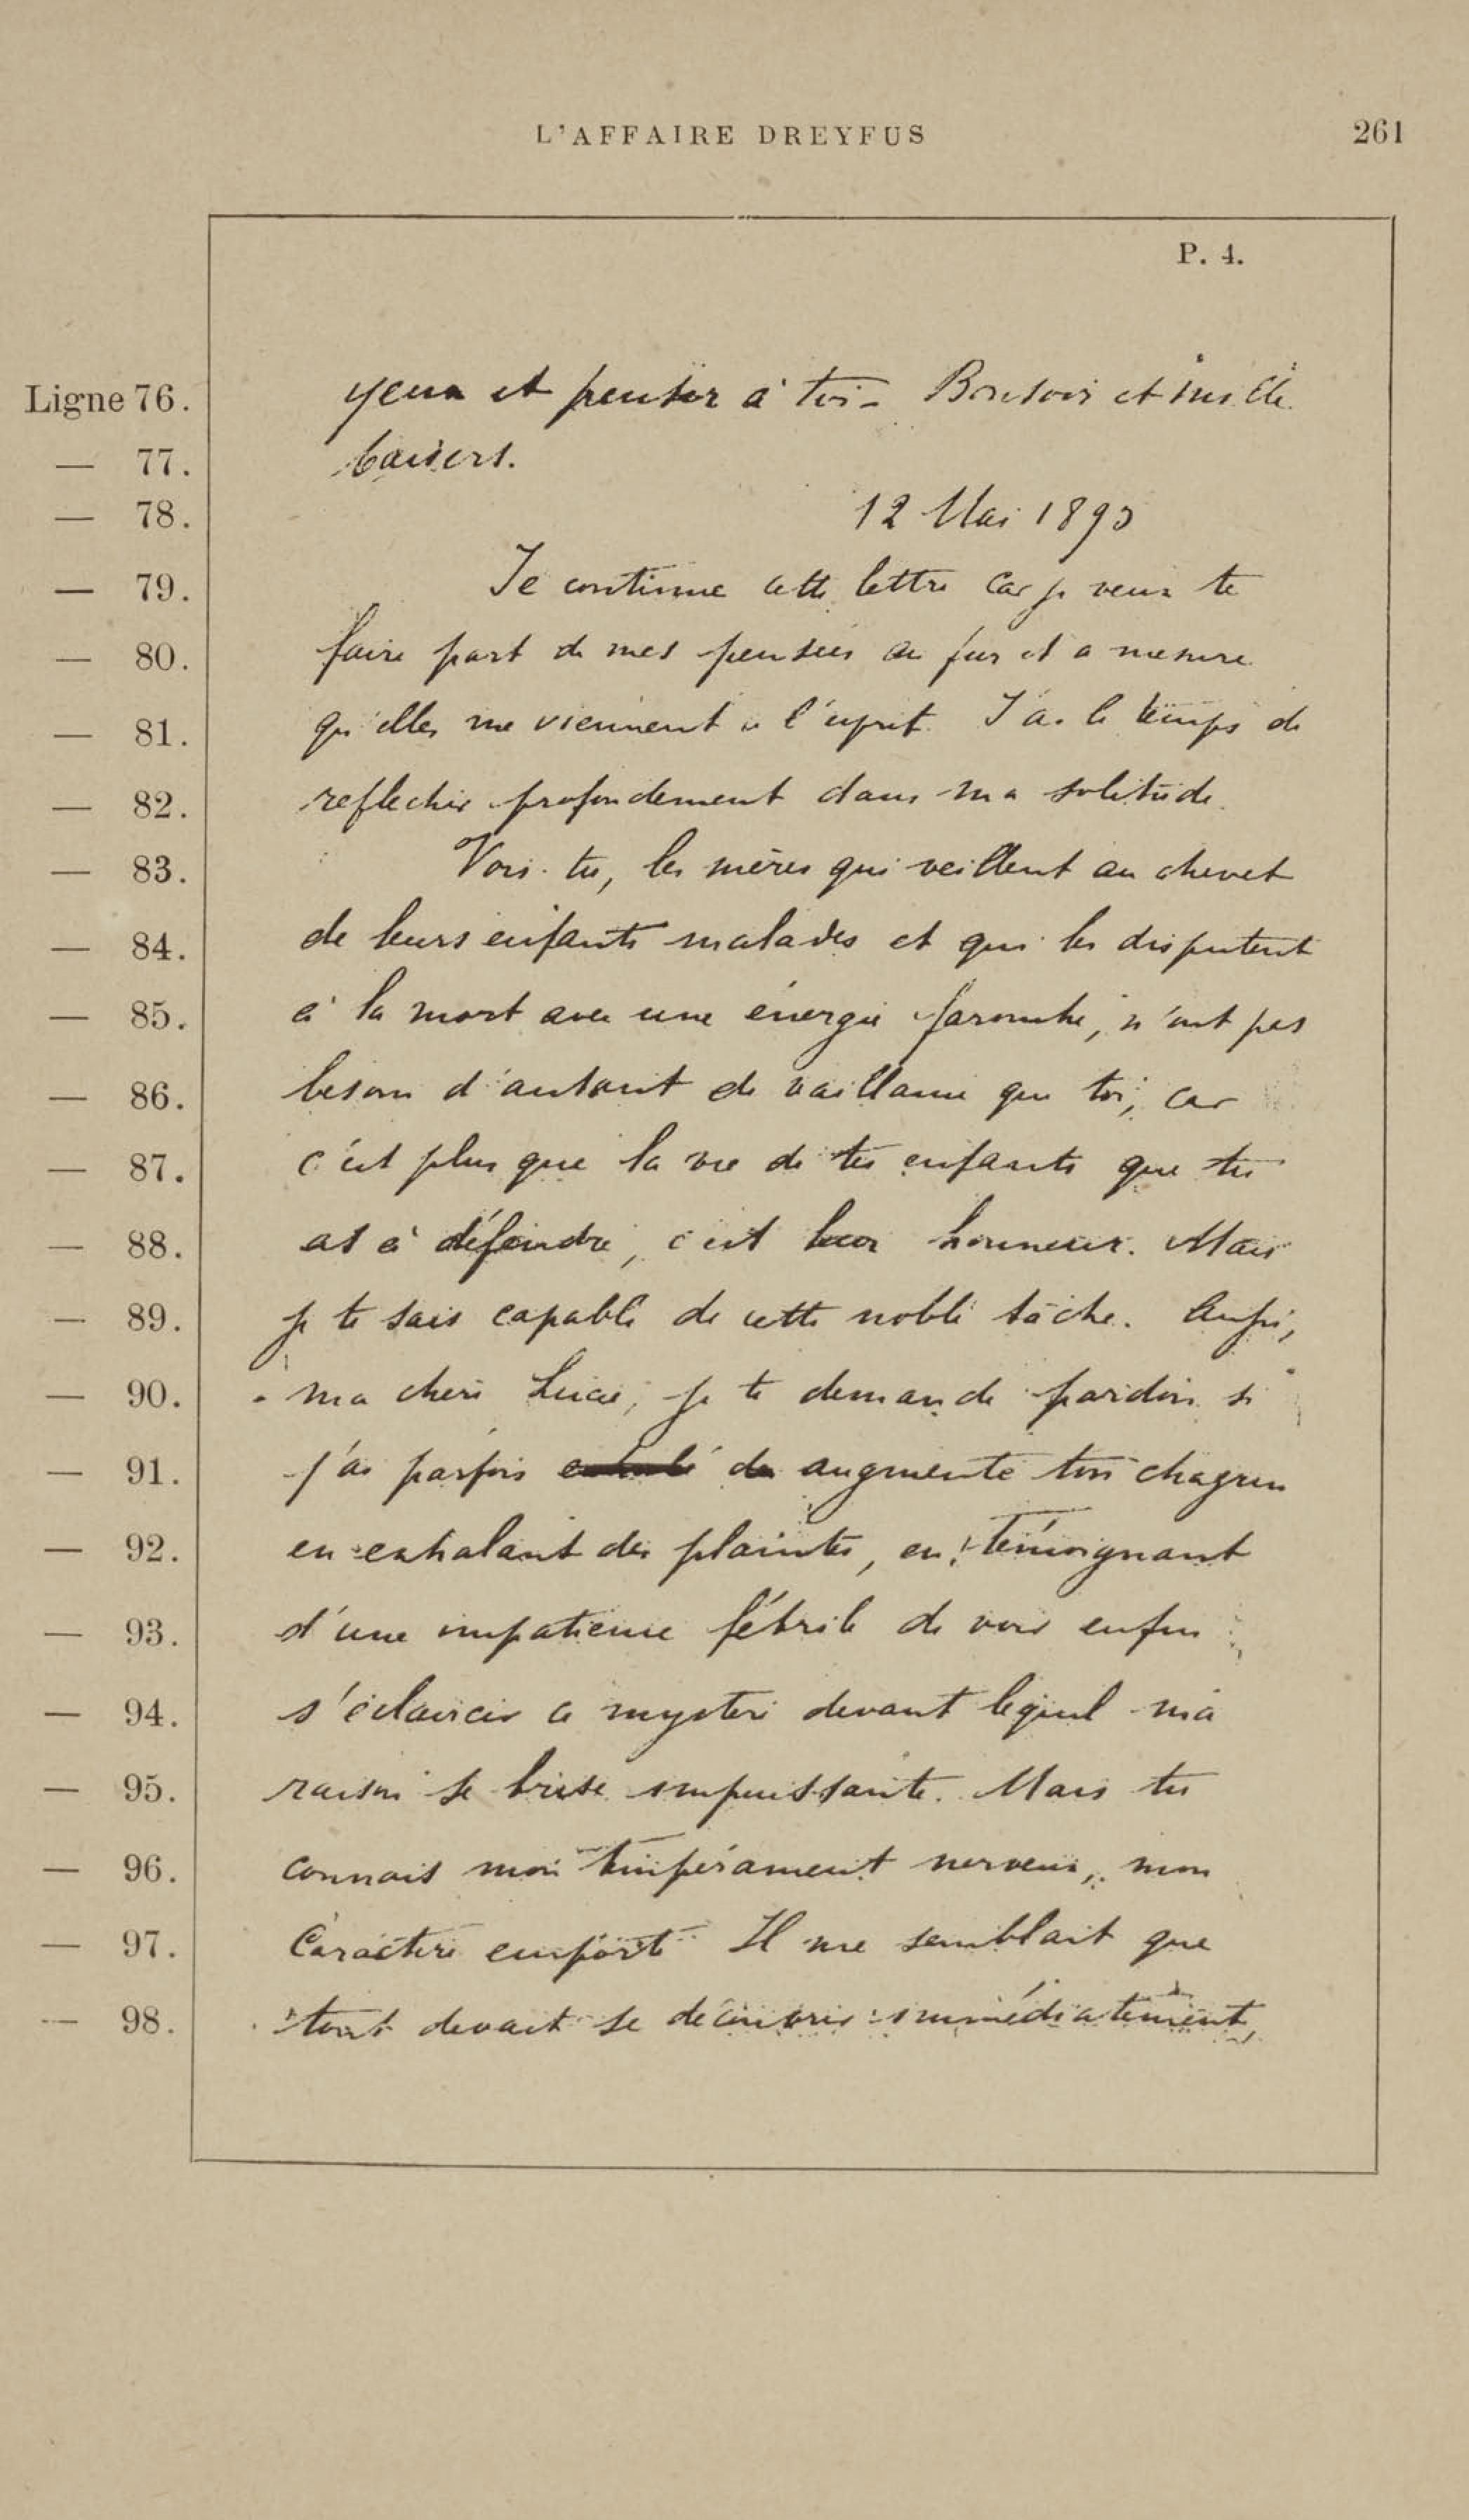 L'AFFAIRE DREYFUS 261
P. 4.
Ligne 76. yeux et penser à toi - Bonsoir et mille
— 77. baisers.
— 78. 12 Mai 1895
— 79. Je continue cette lettre car je veux te
— 80. faire part de mes pensées au fur et a mesure
— 81. qu'elles me viennent à l'esprit. J'ai le temps de
— 82. reflechir profondement dans ma solitude.
— 83. Vois-tu, les mères qui veillent au chevet
— 84. de leurs enfants malades et qui les disputent
— 85. à la mort avec une énergie farouche, n'ont pas
— 86. besoin d'autant de vaillance que toi, car
— 87. c'est plus que la vie de tes enfants que tu
— 88. as à défendre, c'est leur honneur. Mais
— 89. je te sais capable de cette noble tâche. Aussi,
— 90. ma chere Lucie, je te demande pardon si
— 91. j'ai parfois exhalé de augmenté ton chagrin
— 92. en exhalant des plaintes, en témoignant
— 93. d'une impatience fébrile de voir enfin
— 94. s'éclaircir ce mystere devant lequel ma
— 95. raison se brise impuissante. Mais tu
— 96. connais mon tempérament nerveux, mon
— 97. Caractere emporté. Il me semblait que
— 98. tout devait se decouvrir immédiatement,